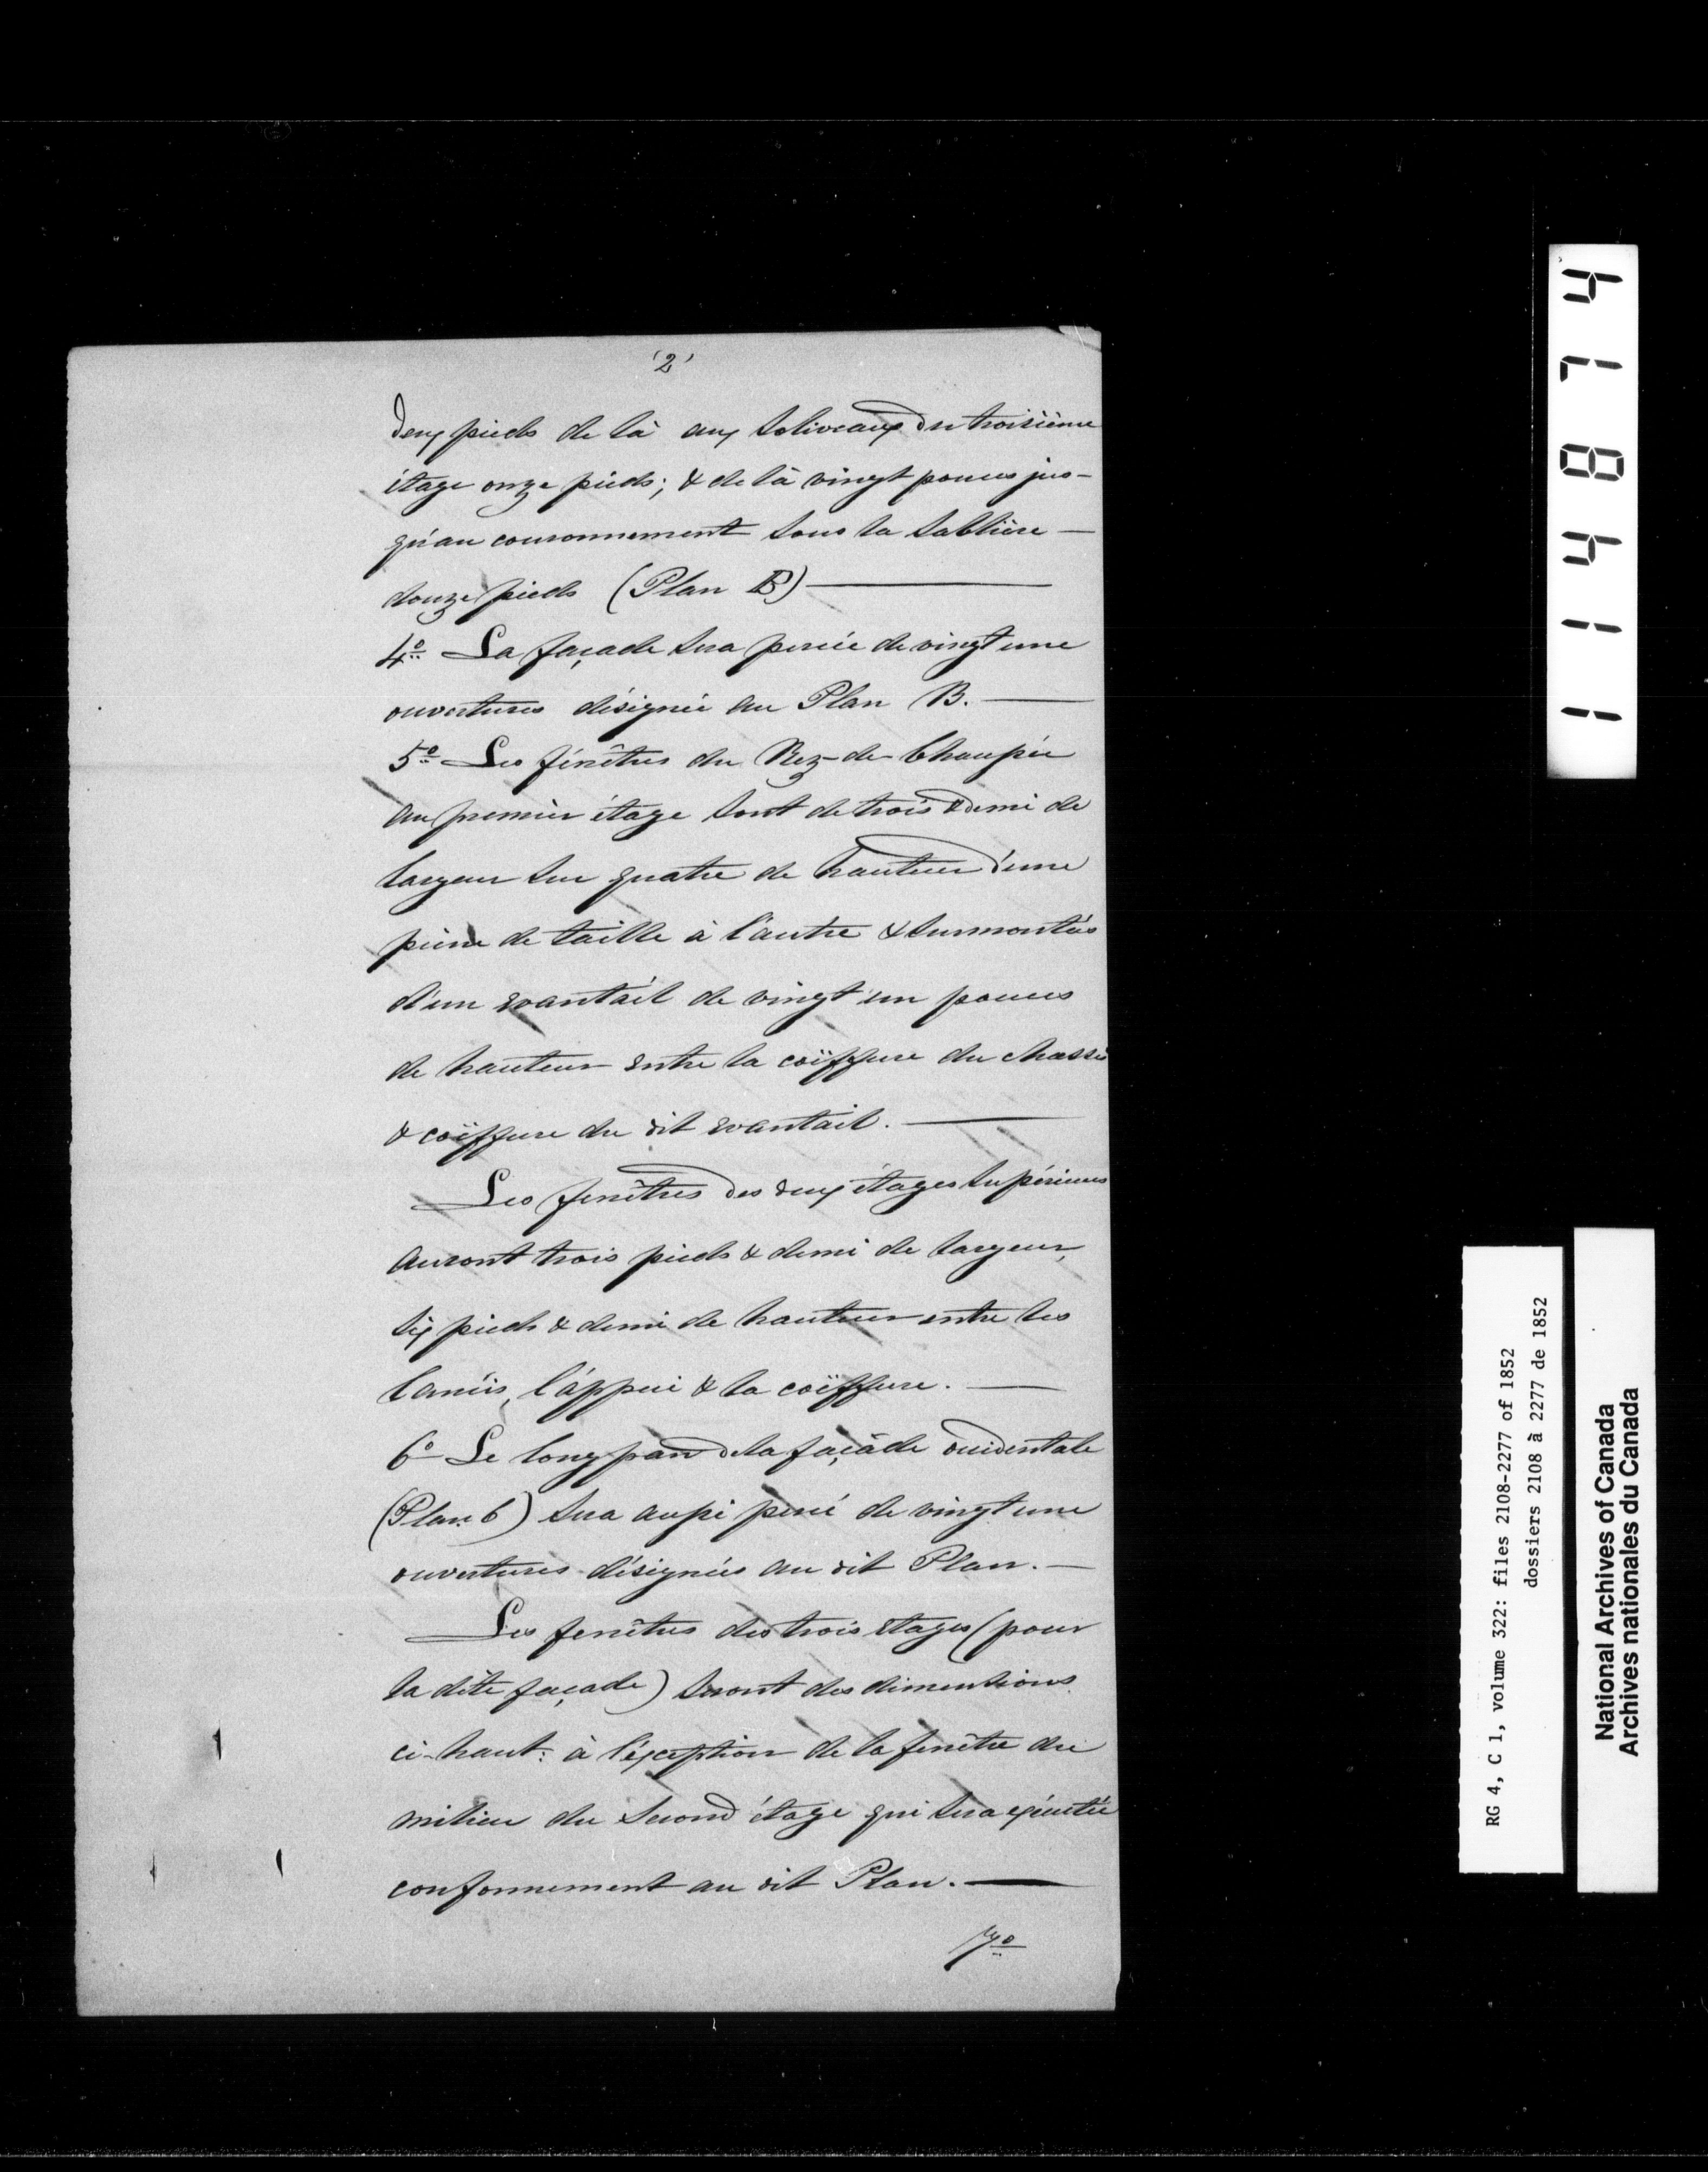 '2'
deux pieds de là aux soliveaux du troisième
étage onze pieds; & de là vingt pouces jus-
qu'au couronnement sous la sablière —
douze pieds (Plan B) —
4º La façade sera percée de vingt une
ouvertures désignée au Plan B. —
5º Les fénêtres du Rez-de-Chaussée
au premier étage sont de trois & demi de
largeur sur quatre de hauteur d'une
pierre de taille à l'autre & surmontés
d'un evantail de vingt un pouces
de hauteur entre la coïffure du chassis
& coïffure du dit evantail. —
Les fenêtres des deux étages supérieurs
auront trois pieds & demi de largeur,
six pieds & demi de hauteur entre les
l'appui & la coïffure. —
6º Le long pan de la façade occidentale
(Plan C) sera aussi percé de vingt une
ouvertures désignées au dit Plan. —
Les fenêtres des trois étages (pour
la dite façade) seront des dimentions
ci-haut: à l'éxception de la fenêtre du
milieu du second étage qui sera exécutée
conformement au dit Plan. —
7º
114874
RG 4, C 1, volume 322: files 2108-2277 of 1852
dossiers 2108 à 2277 de 1852
National Archives of Canada
Archives nationales du Canada